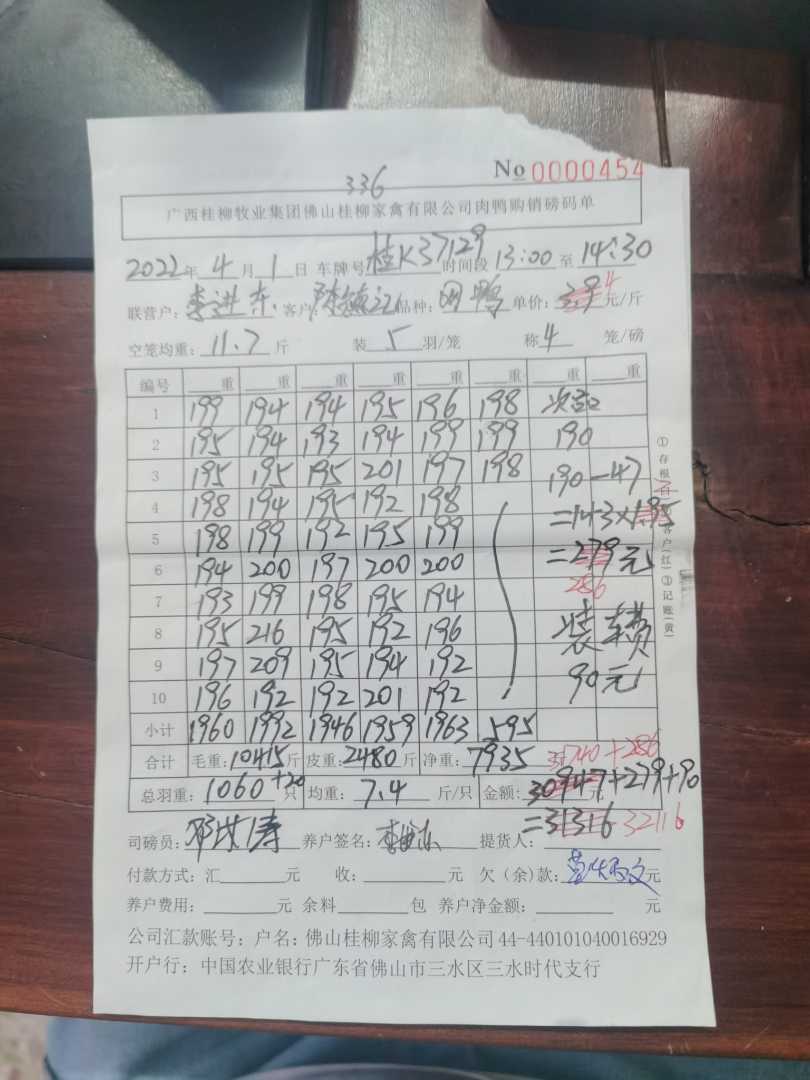 No 0000454
336
广西桂柳牧业集团佛山桂柳家禽有限公司肉鸭购销磅码单
2022年 4 月 1 日 车牌号 桂K37129 时间段 13:00 至 14:30
联营户: 李进东 客户: 品种: 鸭 单价: 3.9 4 元/斤
空笼均重: 11.7 斤 装 5 羽/笼 称 4 笼/磅
编号 重 重 重 重 重 重 重 重
1 199 194 194 195 196 198 次
2 195 194 193 194 199 199 190
3 195 195 195 201 197 198 190-47
4 198 194 195 192 198 =143×1.95
5 198 199 192 195 199
6 194 200 197 200 200 =279元
286
7 193 199 198 195 194
8 195 216 195 192 196 装车费
9 197 209 195 194 192 90元
10 196 192 192 201 192
小计 1960 1992 1946 1959 1963 595
合计 毛重: 10415 斤 皮重: 2480 斤 净重: 7935 31740+286
总羽重: 1060+20 只 均重: 7.4 斤/只 金额: 30947+279+90 元
=31316 32116
司磅员: 邓洪涛 养户签名: 提货人:
付款方式: 汇 元 收: 元 欠(余)款: 元
养户费用: 元 余料 包 养户净金额: 元
公司汇款账号: 户名: 佛山桂柳家禽有限公司 44-440101040016929
开户行: 中国农业银行广东省佛山市三水区三水时代支行
①存根(白)②客户(红)③记账(黄)